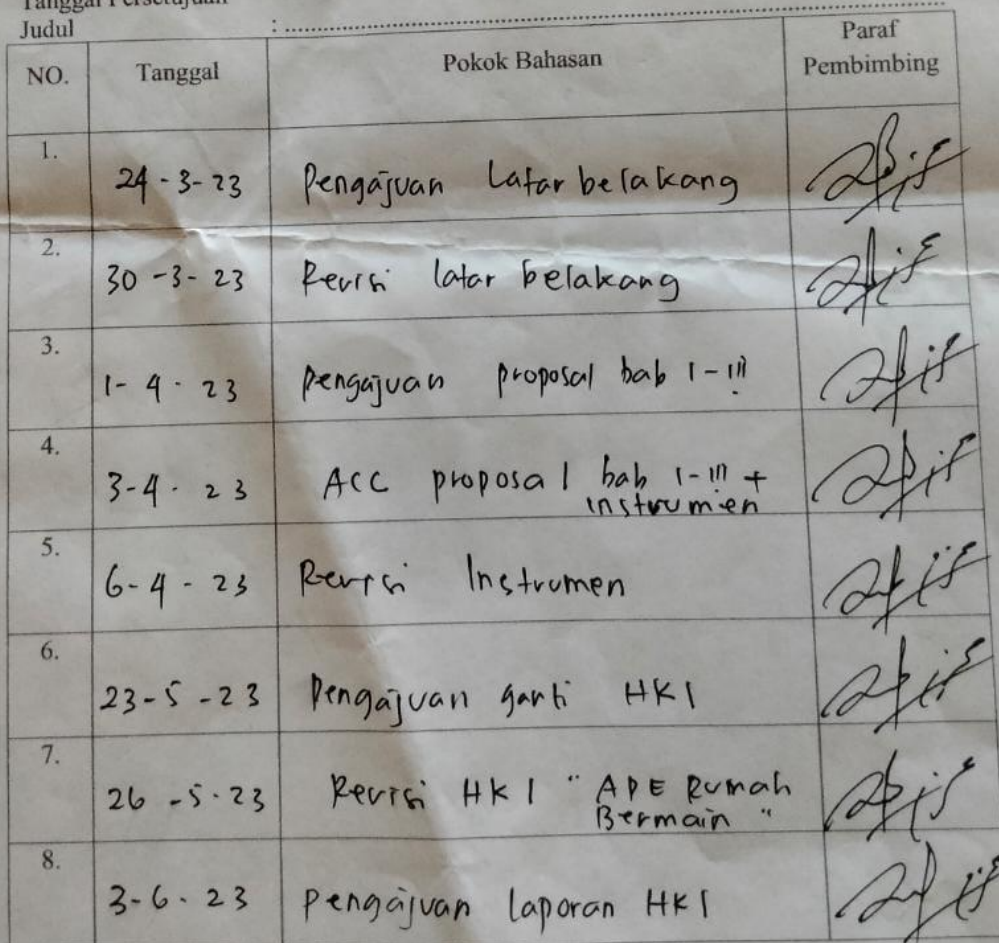 Tanggal Persetujuan
Judul : ....................
NO. Tanggal Pokok Bahasan Paraf Pembimbing
1. 24-3-23 Pengajuan Latar belakang
2. 30-3-23 Revisi latar belakang
3. 1-4-23 Pengajuan proposal bab I-III
4. 3-4-23 ACC proposal bab I-III +
instrumien
5. 6-4-23 Revisi Instrumen
6. 23-5-23 Pengajuan ganti HKI
7. 26-5-23 Revisi HKI "APE Rumah
Bermain"
8. 3-6-23 Pengajuan laporan HKI